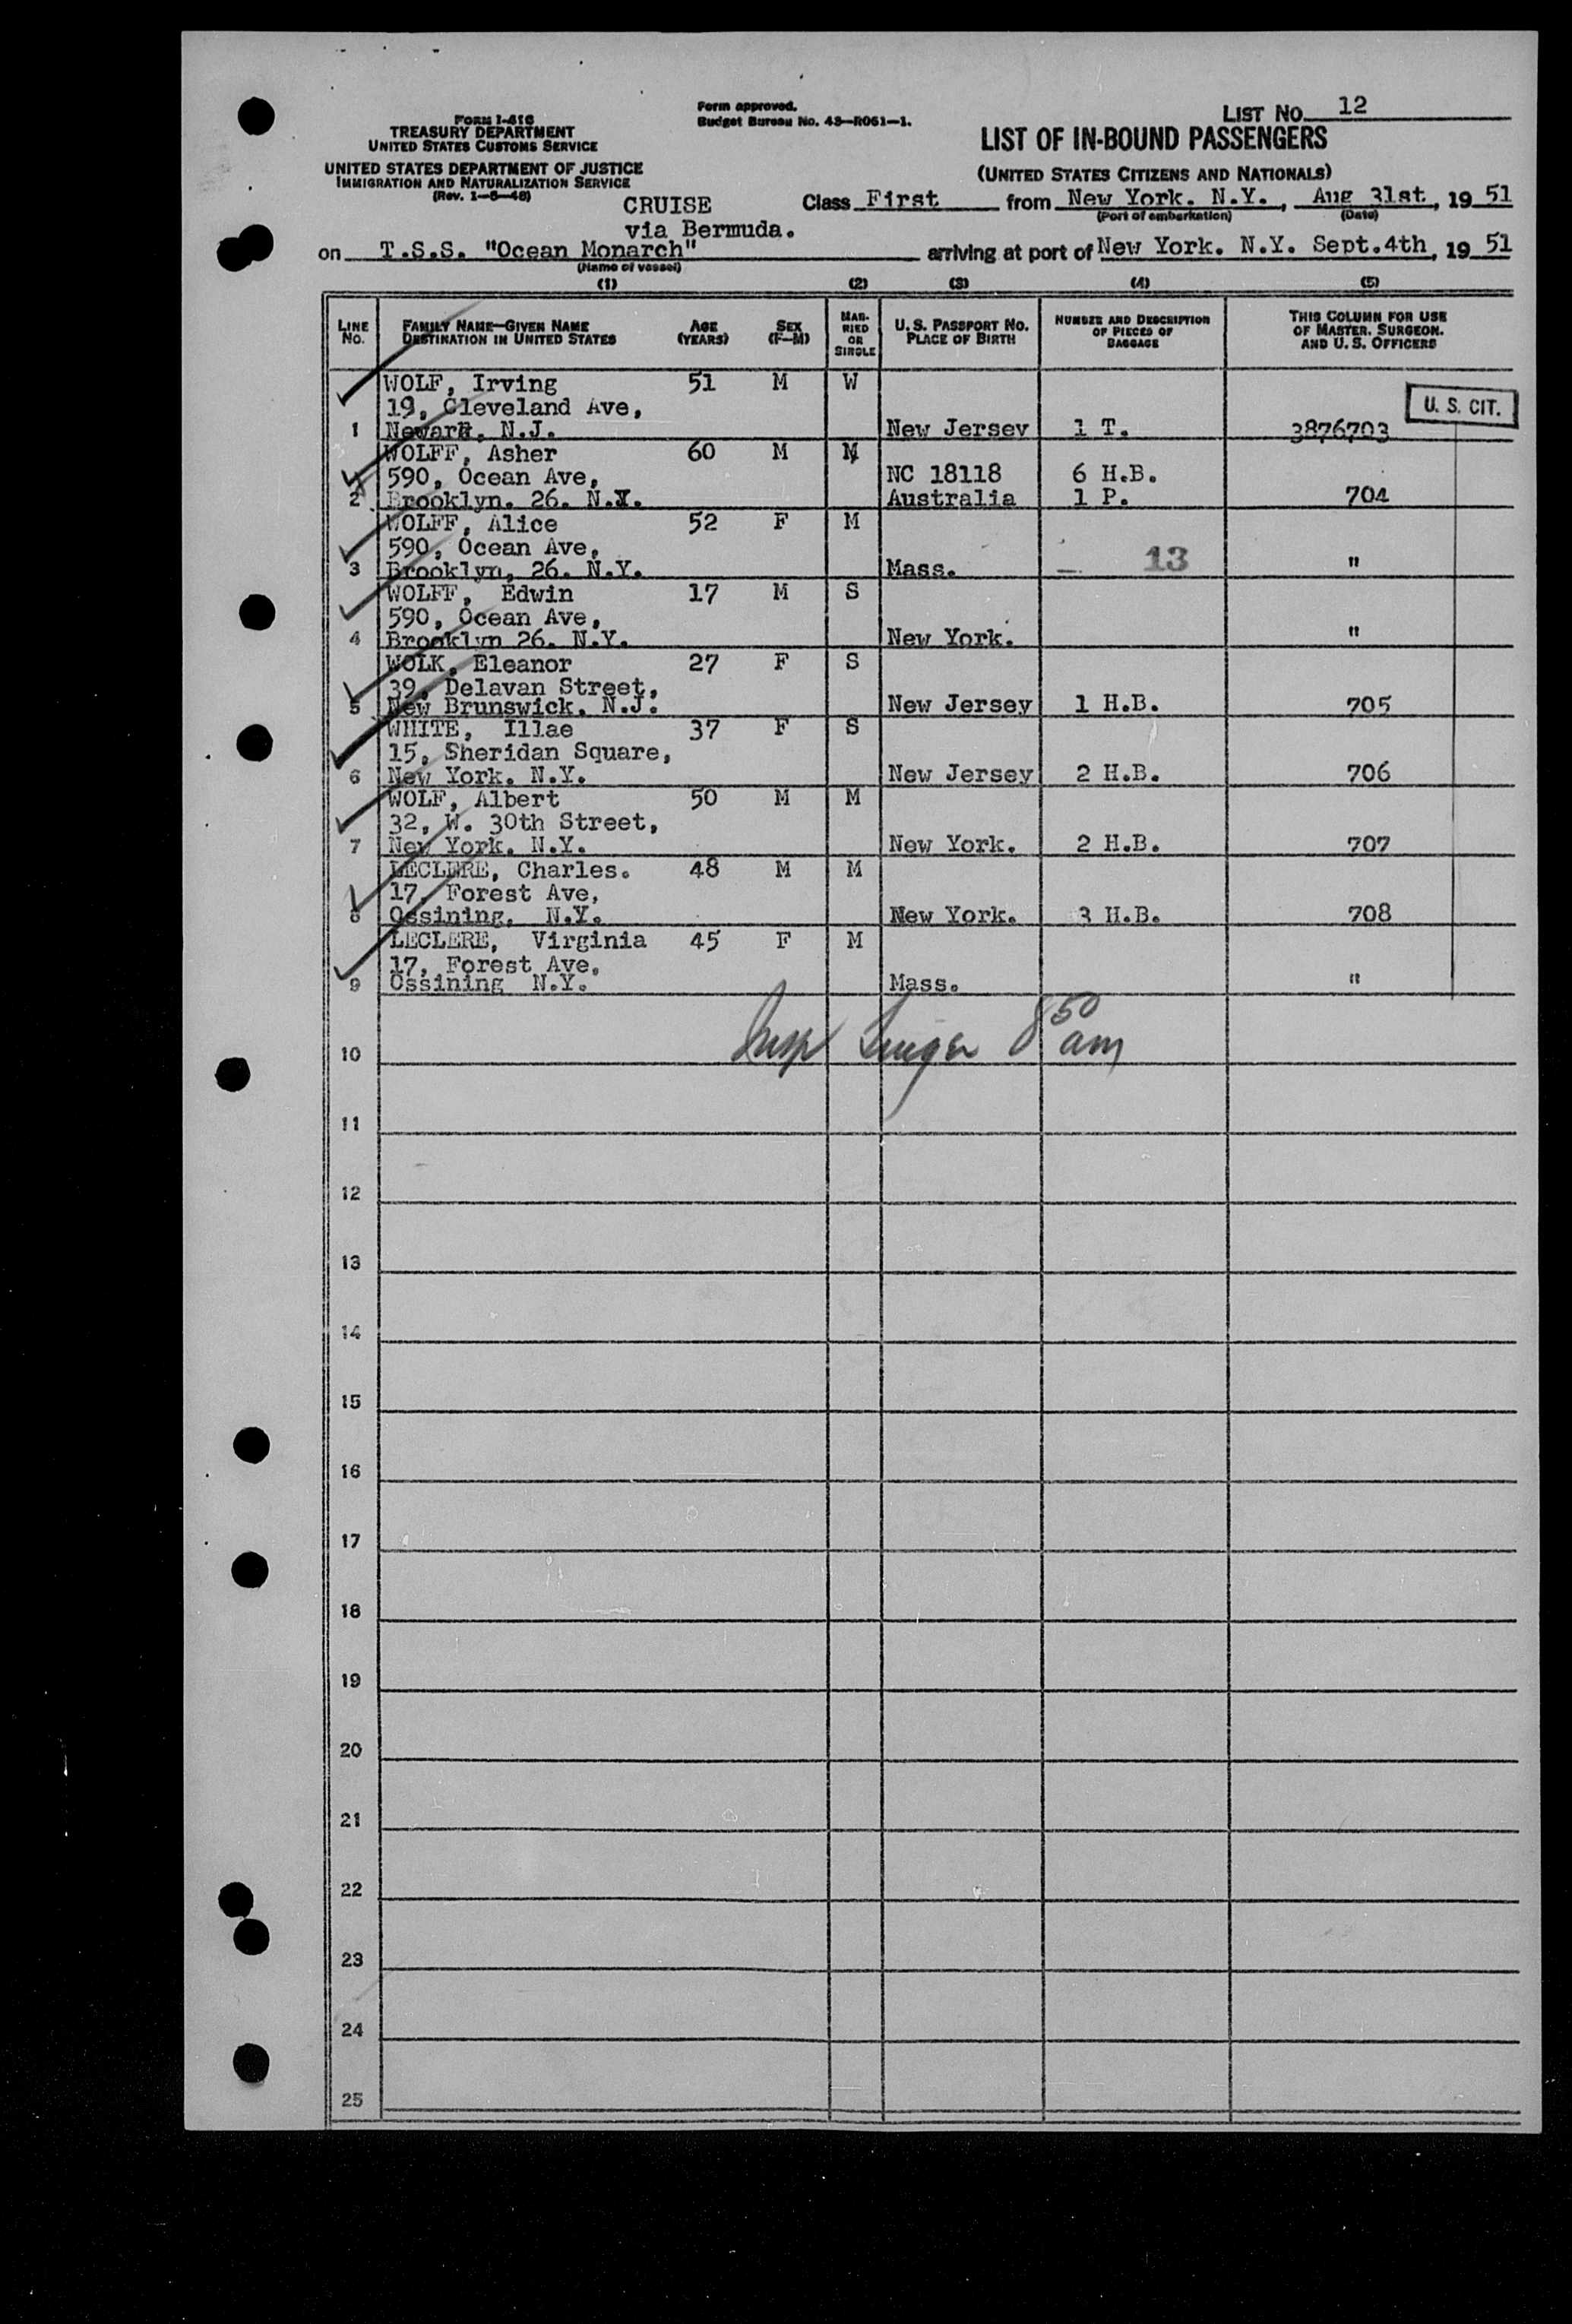 FORM I-416
TREASURY DEPARTMENT
UNITED STATES CUSTOMS SERVICE
UNITED STATES DEPARTMENT OF JUSTICE
IMMIGRATION AND NATURALIZATION SERVICE
(Rev. 1-6-48)
Form approved.
Budget Bureau No. 43-R061-1.
LIST No. 12
LIST OF IN-BOUND PASSENGERS
(UNITED STATES CITIZENS AND NATIONALS)
CRUISE
via Bermuda.
Class First from New York. N.Y., Aug 31st, 19 51
(Port of embarkation) (Date)
on T.S.S. "Ocean Monarch" arriving at port of New York. N.Y. Sept.4th, 19 51
(Name of vessel)
(1) (2) (3) (4) (5)
LINE No. FAMILY NAME—GIVEN NAME DESTINATION IN UNITED STATES AGE (YEARS) SEX (F-M) MARRIED OR SINGLE U. S. PASSPORT No. PLACE OF BIRTH NUMBER AND DESCRIPTION OF PIECES OF BAGGAGE THIS COLUMN FOR USE OF MASTER, SURGEON, AND U. S. OFFICERS
WOLF, Irving 51 M W
19, Cleveland Ave, U. S. CIT.
1 Newark, N.J. New Jersey 1 T. 3876703
WOLFF, Asher 60 M M
590, Ocean Ave, NC 18118 6 H.B.
2 Brooklyn. 26. N.Y. Australia 1 P. 704
WOLFF, Alice 52 F M
590, Ocean Ave,
3 Brooklyn, 26. N.Y. Mass. — 13 "
WOLFF, Edwin 17 M S
590, Ocean Ave,
4 Brooklyn 26. N.Y. New York. "
WOLK, Eleanor 27 F S
39, Delavan Street,
5 New Brunswick. N.J. New Jersey 1 H.B. 705
WHITE, Illae 37 F S
15, Sheridan Square,
6 New York. N.Y. New Jersey 2 H.B. 706
WOLF, Albert 50 M M
32, W. 30th Street,
7 New York. N.Y. New York. 2 H.B. 707
LECLERE, Charles. 48 M M
17, Forest Ave,
8 Ossining, N.Y. New York. 3 H.B. 708
LECLERE, Virginia 45 F M
17, Forest Ave,
9 Ossining N.Y. Mass. "
Insp 8 50 am
10
11
12
13
14
15
16
17
18
19
20
21
22
23
24
25